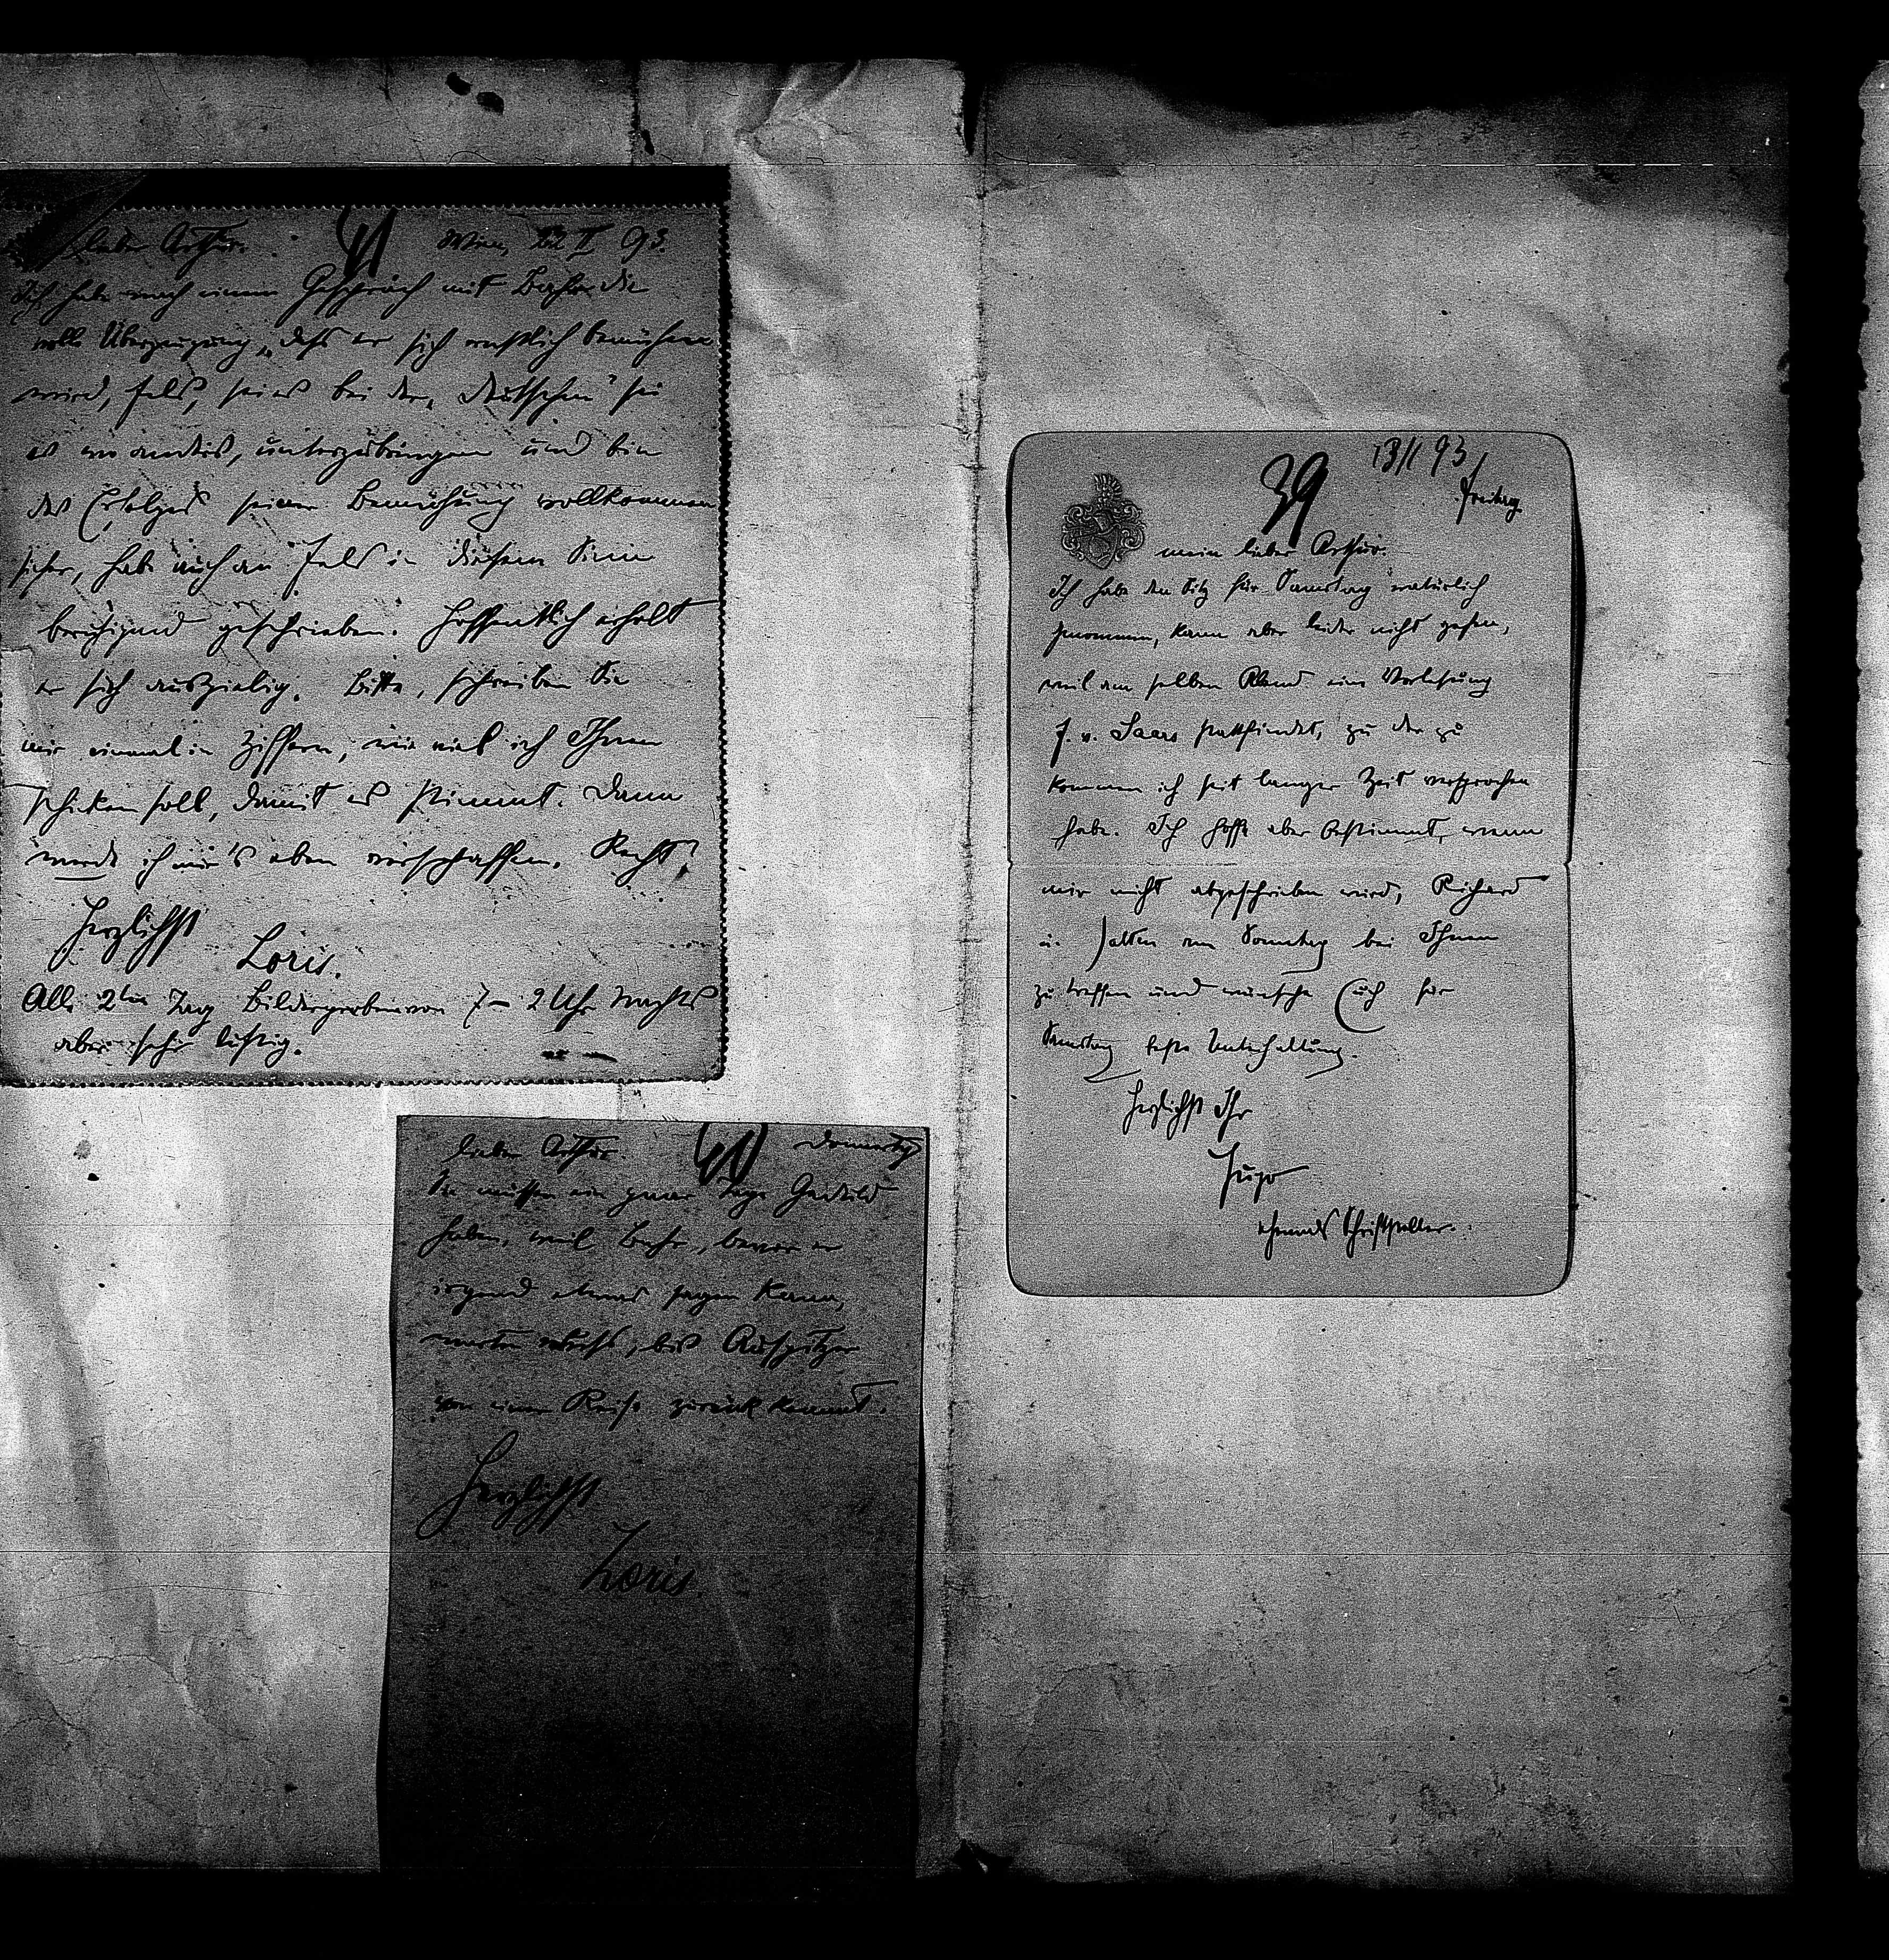 lieber Arthur.
41
Wien, 22 II 93.
Ich habe nach einem Gespräch mit Bahr die
volle Überzeugung, dass er sich ernstlich bemühen
wird, Fels, sei es bei der „Deutschen" sei
es wo anders, unterzubringen und bin
des Erfolges seiner Bemühung vollkommen
sicher, habe auch an Fels in diesem Sinn
beruhigend geschrieben. Hoffentlich erholt
er sich ausgiebig. Bitte, schreiben Sie
mir einmal in Ziffern, wie viel ich Ihnen
schicken soll, damit es stimmt. Dann
werde ich mir's eben verschaffen. Recht?
Herzlichst
Loris.
Alle 2ten Tag Bilderproben von 7 – 2 Uhr Nachts
aber sehr lustig.
lieber Arthur.
40
Donnerstag
Sie müssen ein paar Tage Geduld
haben, weil Bahr, bevor er
irgend etwas sagen kann,
warten muss, bis Auspitzer
von einer Reise zurück kommt.
Herzlichst
Loris
39
13/1 93
Freitag
mein lieber Arthur.
Ich habe den Sitz für Samstag natürlich
genommen, kann aber leider nicht gehen,
weil am selben Abend eine Vorlesung
F. v. Saars stattfindet, zu der zu
kommen ich seit langer Zeit versprochen
habe. Ich hoffe aber bestimmt, wenn
mir nicht abgeschrieben wird, Richard
u. Salten am Sonntag bei Ihnen
zu treffen und wünsche Euch für
Samstag beste Unterhaltung.
Herzlichst Ihr
Hugo
ehemals Schriftsteller.